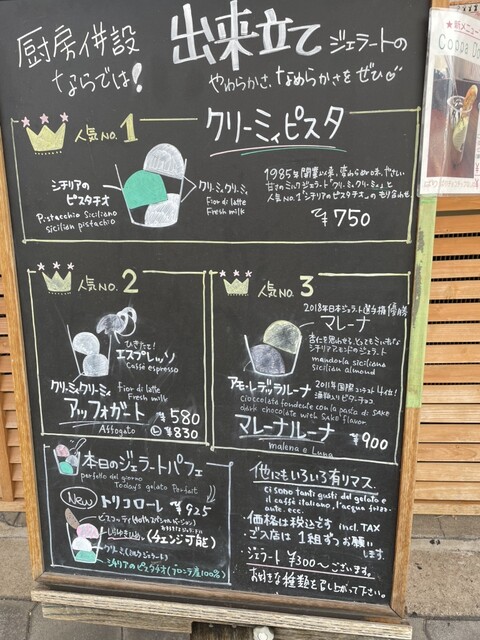 厨房併設
ならでは!
出来立てジェラートの
やわらかさ、なめらかさをぜひ♡
人気No.1
クリーミィピスタ
シチリアの
ピスタチオ
Pistacchio siciliano
sicilian pistachio
クリーミィクリーミィ
Fior di latte
Fresh milk
1985年開業以来、変わらぬ
やさしい
甘さのミルクジェラート「クリーミィクリーミィ」と
人気No.1「シチリアのピスタチオ」のもり合わせ
¥750
人気No.2
ひきたて!
エスプレッソ
Caffè espresso
クリーミィクリーミィ
Fior di latte
Fresh milk
アッフォガート
Affogato
¥580
Ⓛ ¥830
人気No.3
2018年日本ジェラート選手権優勝
マレーナ
杏仁を思わせる、とっても
シチリアアーモンドのジェラート
mandorla siciliana
sicilian almond
アモーレデッラルーナ
2011年国際コンテスト4位!
cioccolato fondente con la pasta di SAKE
dark chocolate with SAKE flavor
マレーナルーナ
malena e Luna
¥900
本日のジェラートパフェ
perfetto del giorno
Today's gelato Perfait
New
トリコローレ ¥925
ビスコッティ
(チェンジ可能)
クリーミィ(ミルクジェラート)
シチリアのピスタチオ(ブロンテ産100%)
他にもいろいろ有リマス。
ci sono tanti gusti del gelato e
il caffè italiano, l'acqua frizz-
ante. ecc.
・価格は税込です incl. TAX
・ご入店は1組ずつお願い
します。
・ジェラート ¥300〜ございます。
お好きな種類を召し上がって下さい。
★新メニュー
Coppa D